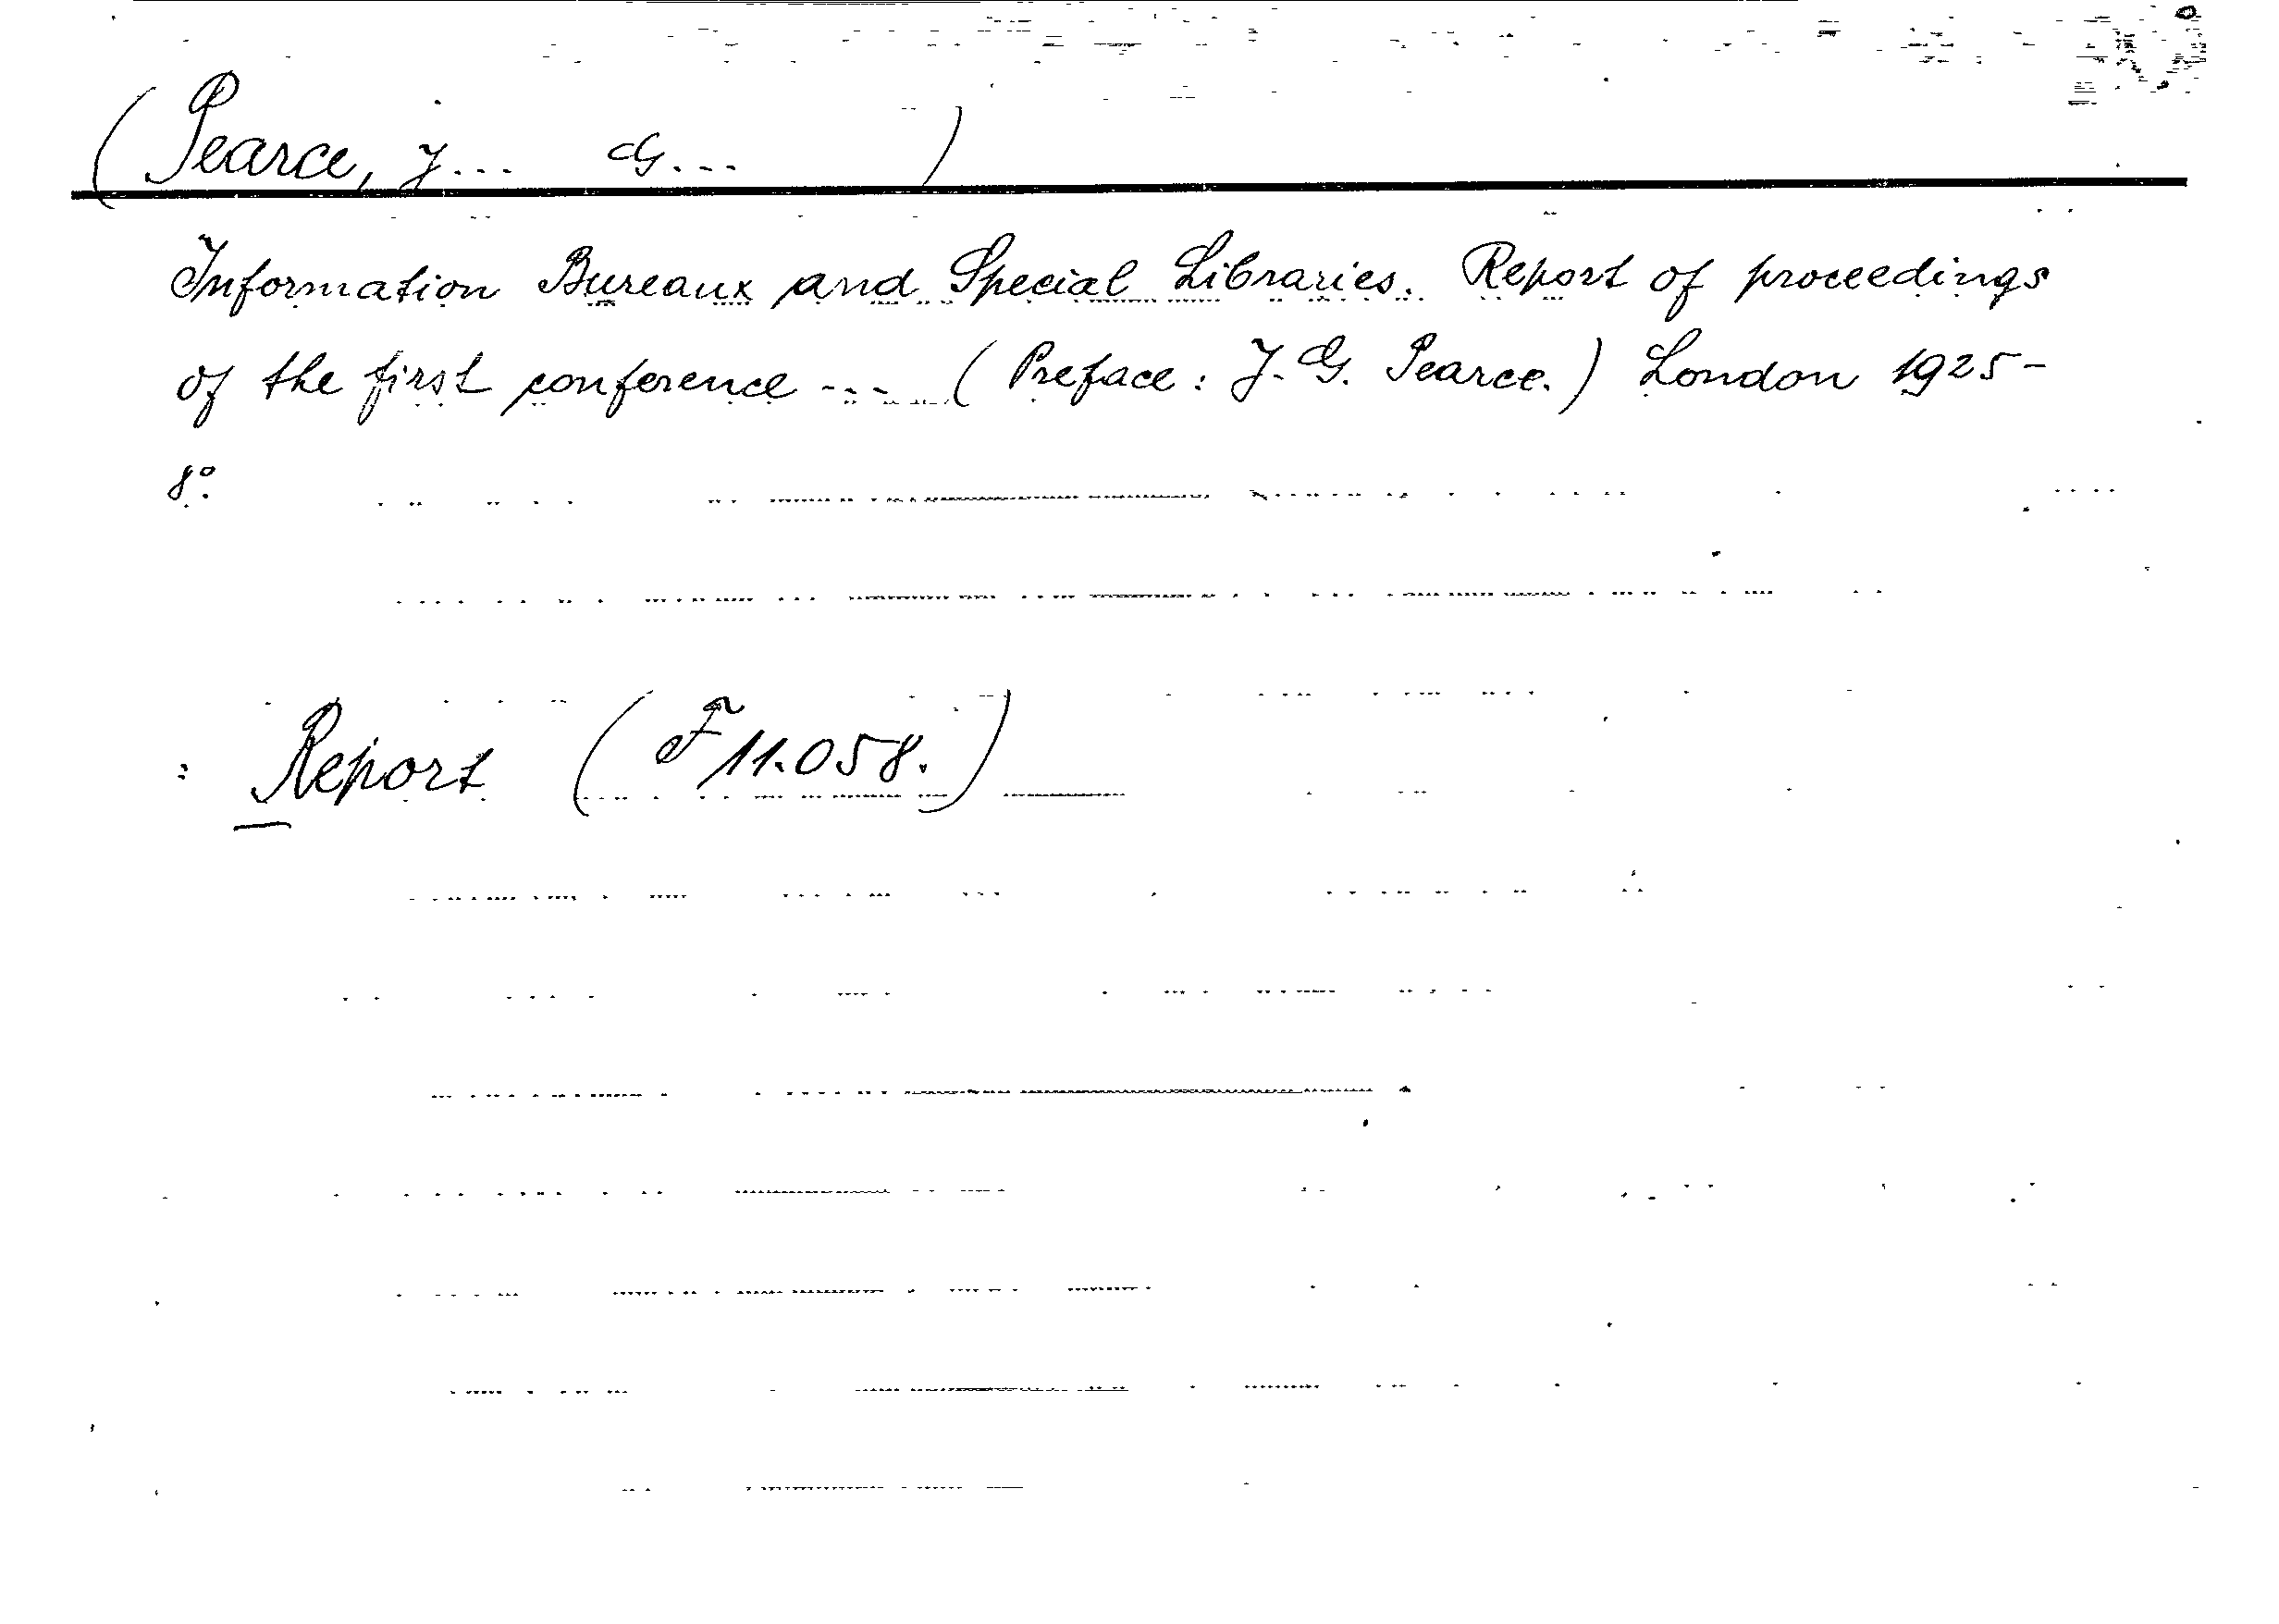 (Pearce, J... G... )
Information Bureaux and Special Libraries. Report of proceedings
of the first conference --- (Preface: J. G. Pearce.) London 1925-
8°.
: Report (F 11.058.)